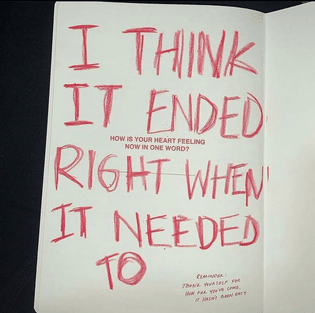 I THINK
IT ENDED
HOW IS YOUR HEART FEELING
NOW IN ONE WORD?
RIGHT WHEN
IT NEEDED
TO
REMINDER:
THANK YOURSELF FOR
HOW FAR YOU'VE COME,
IT HASN'T BEEN EASY